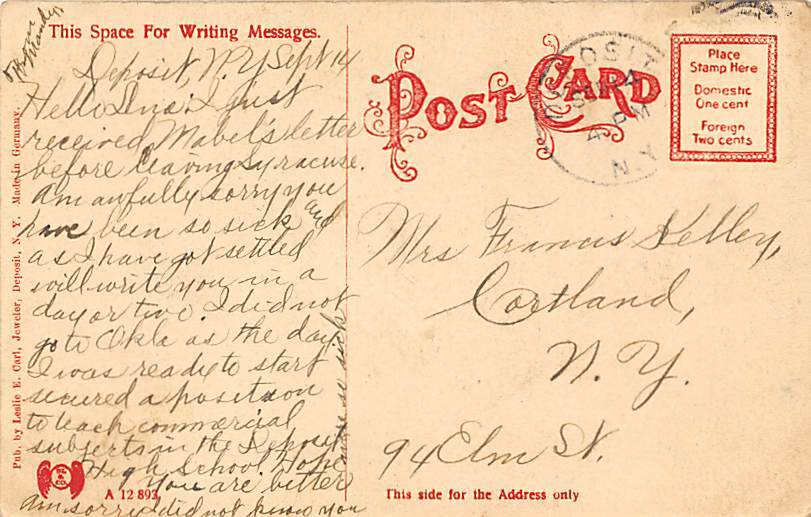 From
Blanche
This Space For Writing Messages.
Deposit, N.Y. Sept 14
Hello Ina: I just
received Mabel's letter
before leaving Syracuse.
Am awfully sorry you
have been so sick and
as I have got settled
will write you in a
day or two. I did not
go to Okla as the day
I was ready to start
secured a position
to teach commercial
subjects in the Deposit
High School. Hope
you are better
am sorry I did not know you
were so sick
Pub. by Leslie E. Carl, Jeweler, Deposit, N. Y. Made in Germany.
A 12 893
POST CARD
DEPOSIT
SEP
4 PM
N.Y.
Place
Stamp Here
Domestic
One cent
Foreign
Two cents
Mrs Francis Kelley,
Cortland,
N. Y.
94 Elm St.
This side for the Address only